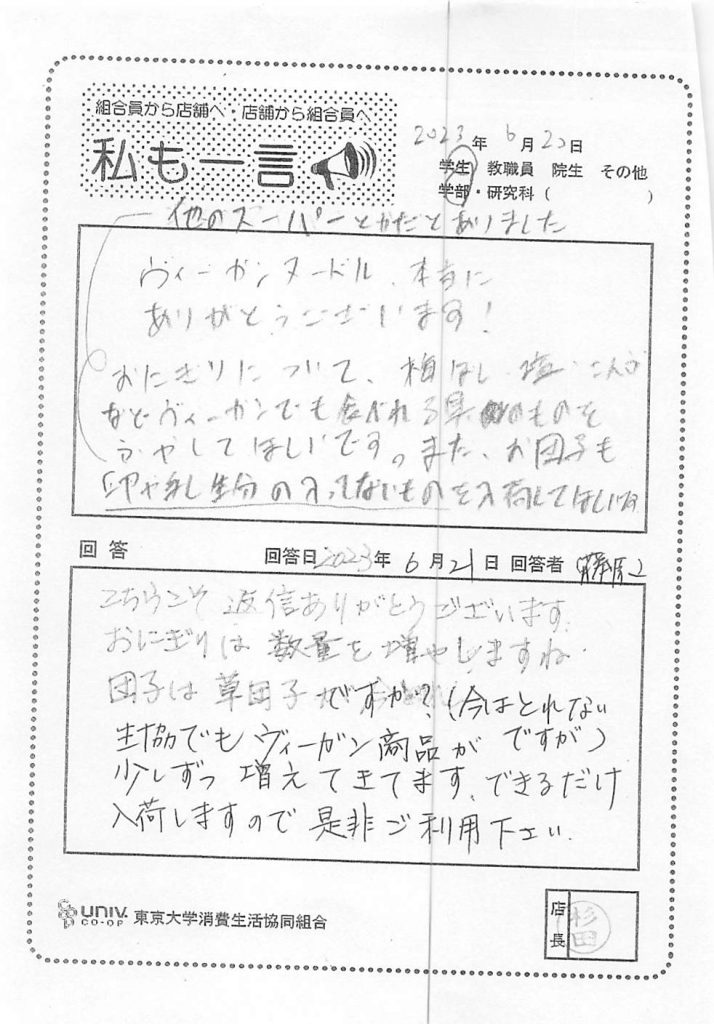 組合員から店舗へ・店舗から組合員へ
私も一言
2023年 6月20日
学生 教職員 院生 その他
学部・研究科（ ）
他のスーパーとかだとありました
ヴィーガンヌードル、本当に
ありがとうございます！
おにぎりについて、梅ほし、塩、こんぶ
などヴィーガンでも食べれる具のものを
ふやしてほしいです。また、お団子も
卵や乳成分の入ってないものを入荷してほしいです
回答 回答日2023年 6月21日 回答者 藤原
こちらこそ 返信ありがとうございます。
おにぎりは 数量を増やしますね。
団子は 草団子ですか？（今はとれない
ですが）
生協でもヴィーガン商品が
少しずつ 増えてきてます。できるだけ
入荷しますので 是非ご利用下さい。
UNIV. CO-OP 東京大学消費生活協同組合
店長 杉田